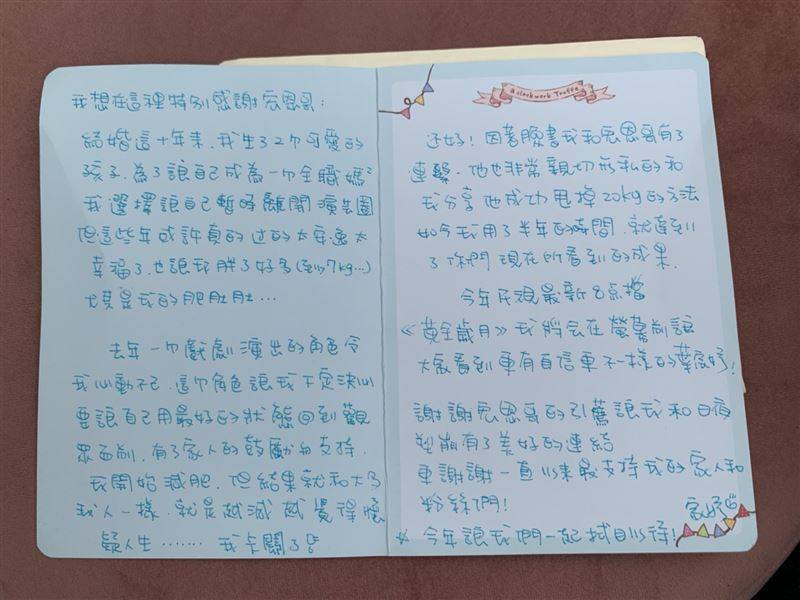 我想在這裡特別感謝宏恩哥：
結婚這十年來，我生了2个可愛的
孩子，為了讓自己成為一个全職媽媽
我選擇讓自己暫時離開演藝圈
但這些年或許真的过的太安逸太
幸福了，也讓我胖了好多(至少7kg...)
尤其是我的肥肚肚...
去年一个戲劇演出的角色令
我心動不已，這个角色讓我下定決心
要讓自己用最好的狀態回到觀
眾面前，有了家人的鼓勵与支持，
我開始減肥，但結果就和大多
数人一樣，就是越減越覺得懷
疑人生....... 我卡關了
A clockwork Truffa
还好！因著臉書我和宏恩哥有了
連繫，他也非常親切無私的和
我分享他成功甩掉20kg的方法
如今我用了半年的時間，就達到
了你們現在所看到的成果，
今年民視最新8点檔
《黄金歲月》我將会在螢幕前讓
大家看到更有自信更不一樣的葉家妤！
謝謝宏恩哥的引薦讓我和日夜
塑崩有了美好的連結
更謝謝一直以來最支持我的家人和
粉絲們！
家妤
今年讓我們一起拭目以待！